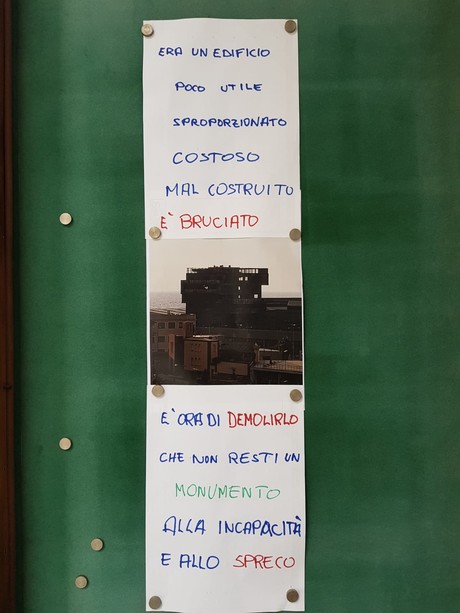 ERA UN EDIFICIO
POCO UTILE
SPROPORZIONATO
COSTOSO
MAL COSTRUITO
E' BRUCIATO
E' ORA DI DEMOLIRLO
CHE NON RESTI UN
MONUMENTO
ALLA INCAPACITÀ
E ALLO SPRECO